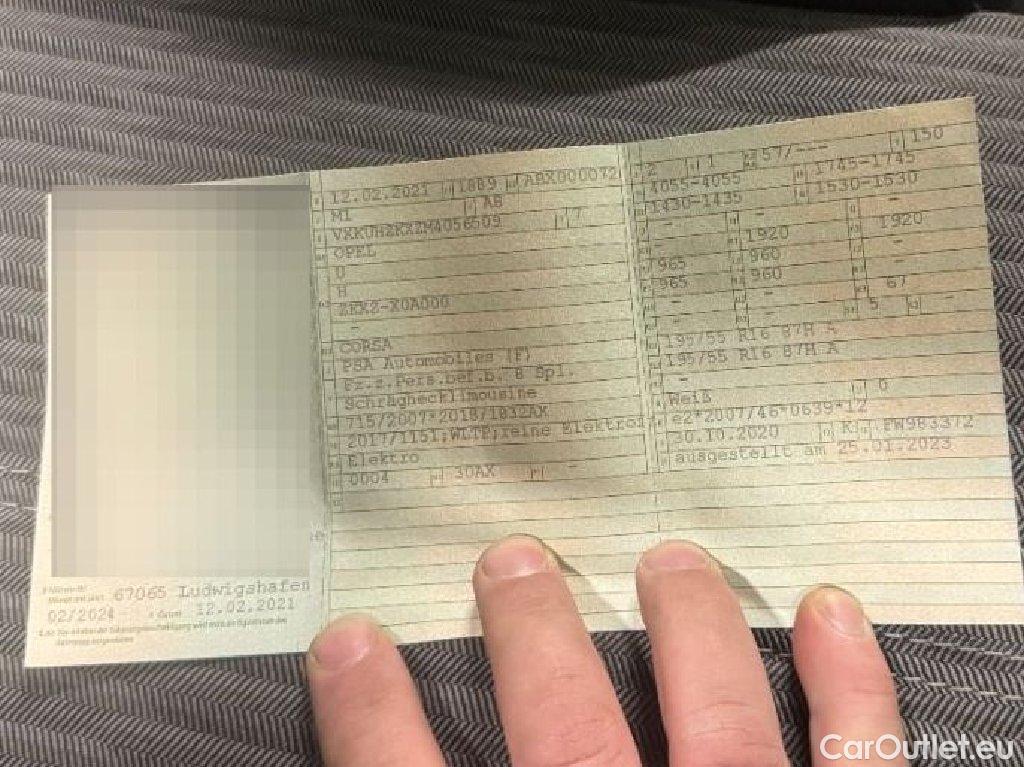 67065 Ludwigshafen
02/2024 12.02.2021
12.02.2021 1889 ABX000072
M1 AB
7
OPEL
0
H
ZKXZ-X0A000
-
CORSA
PSA Automobiles (F)
Fz.z.Pers.bef.b. 8 Spl.
Schräghecklimousine
715/2007*2018/1832AX
2017/1151;WLTP;reine Elektroi
Elektro
0004 30AX -
2 1 57/--- 150
4055-4055 1745-1745
1430-1435 1530-1530
- -
1920 1920
965 960 -
965 960 67
- - 5 -
195/55 R16 87H A
195/55 R16 87H A
-
Weiß 0
e2*2007/46*0639*12
30.10.2020 K PW983372
ausgestellt am 25.01.2023
CarOutlet.eu